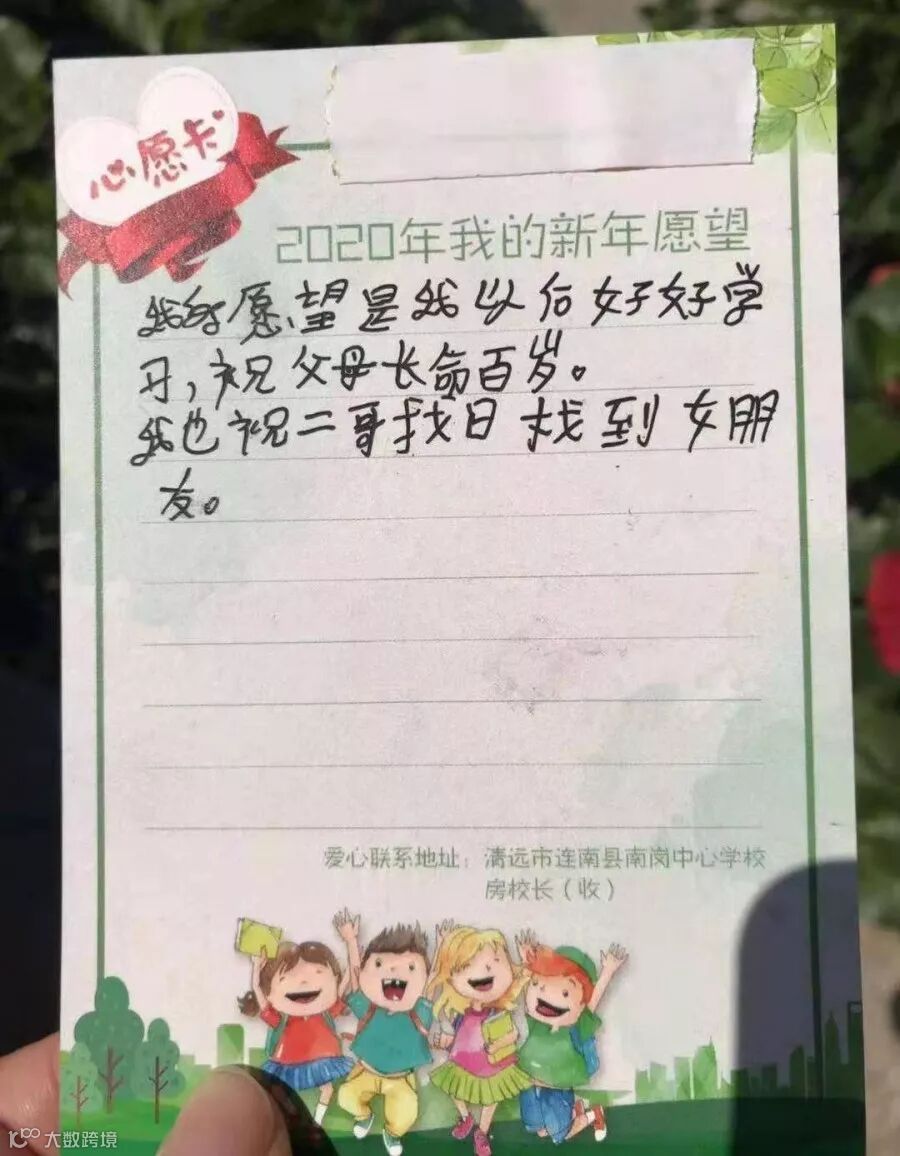 心愿卡
2020年我的新年愿望
我的愿望是我以后好好学
习，祝父母长命百岁。
我也祝二哥找日找到女朋
友。
爱心联系地址：清远市连南县南岗中心学校
房校长（收）
大数跨境